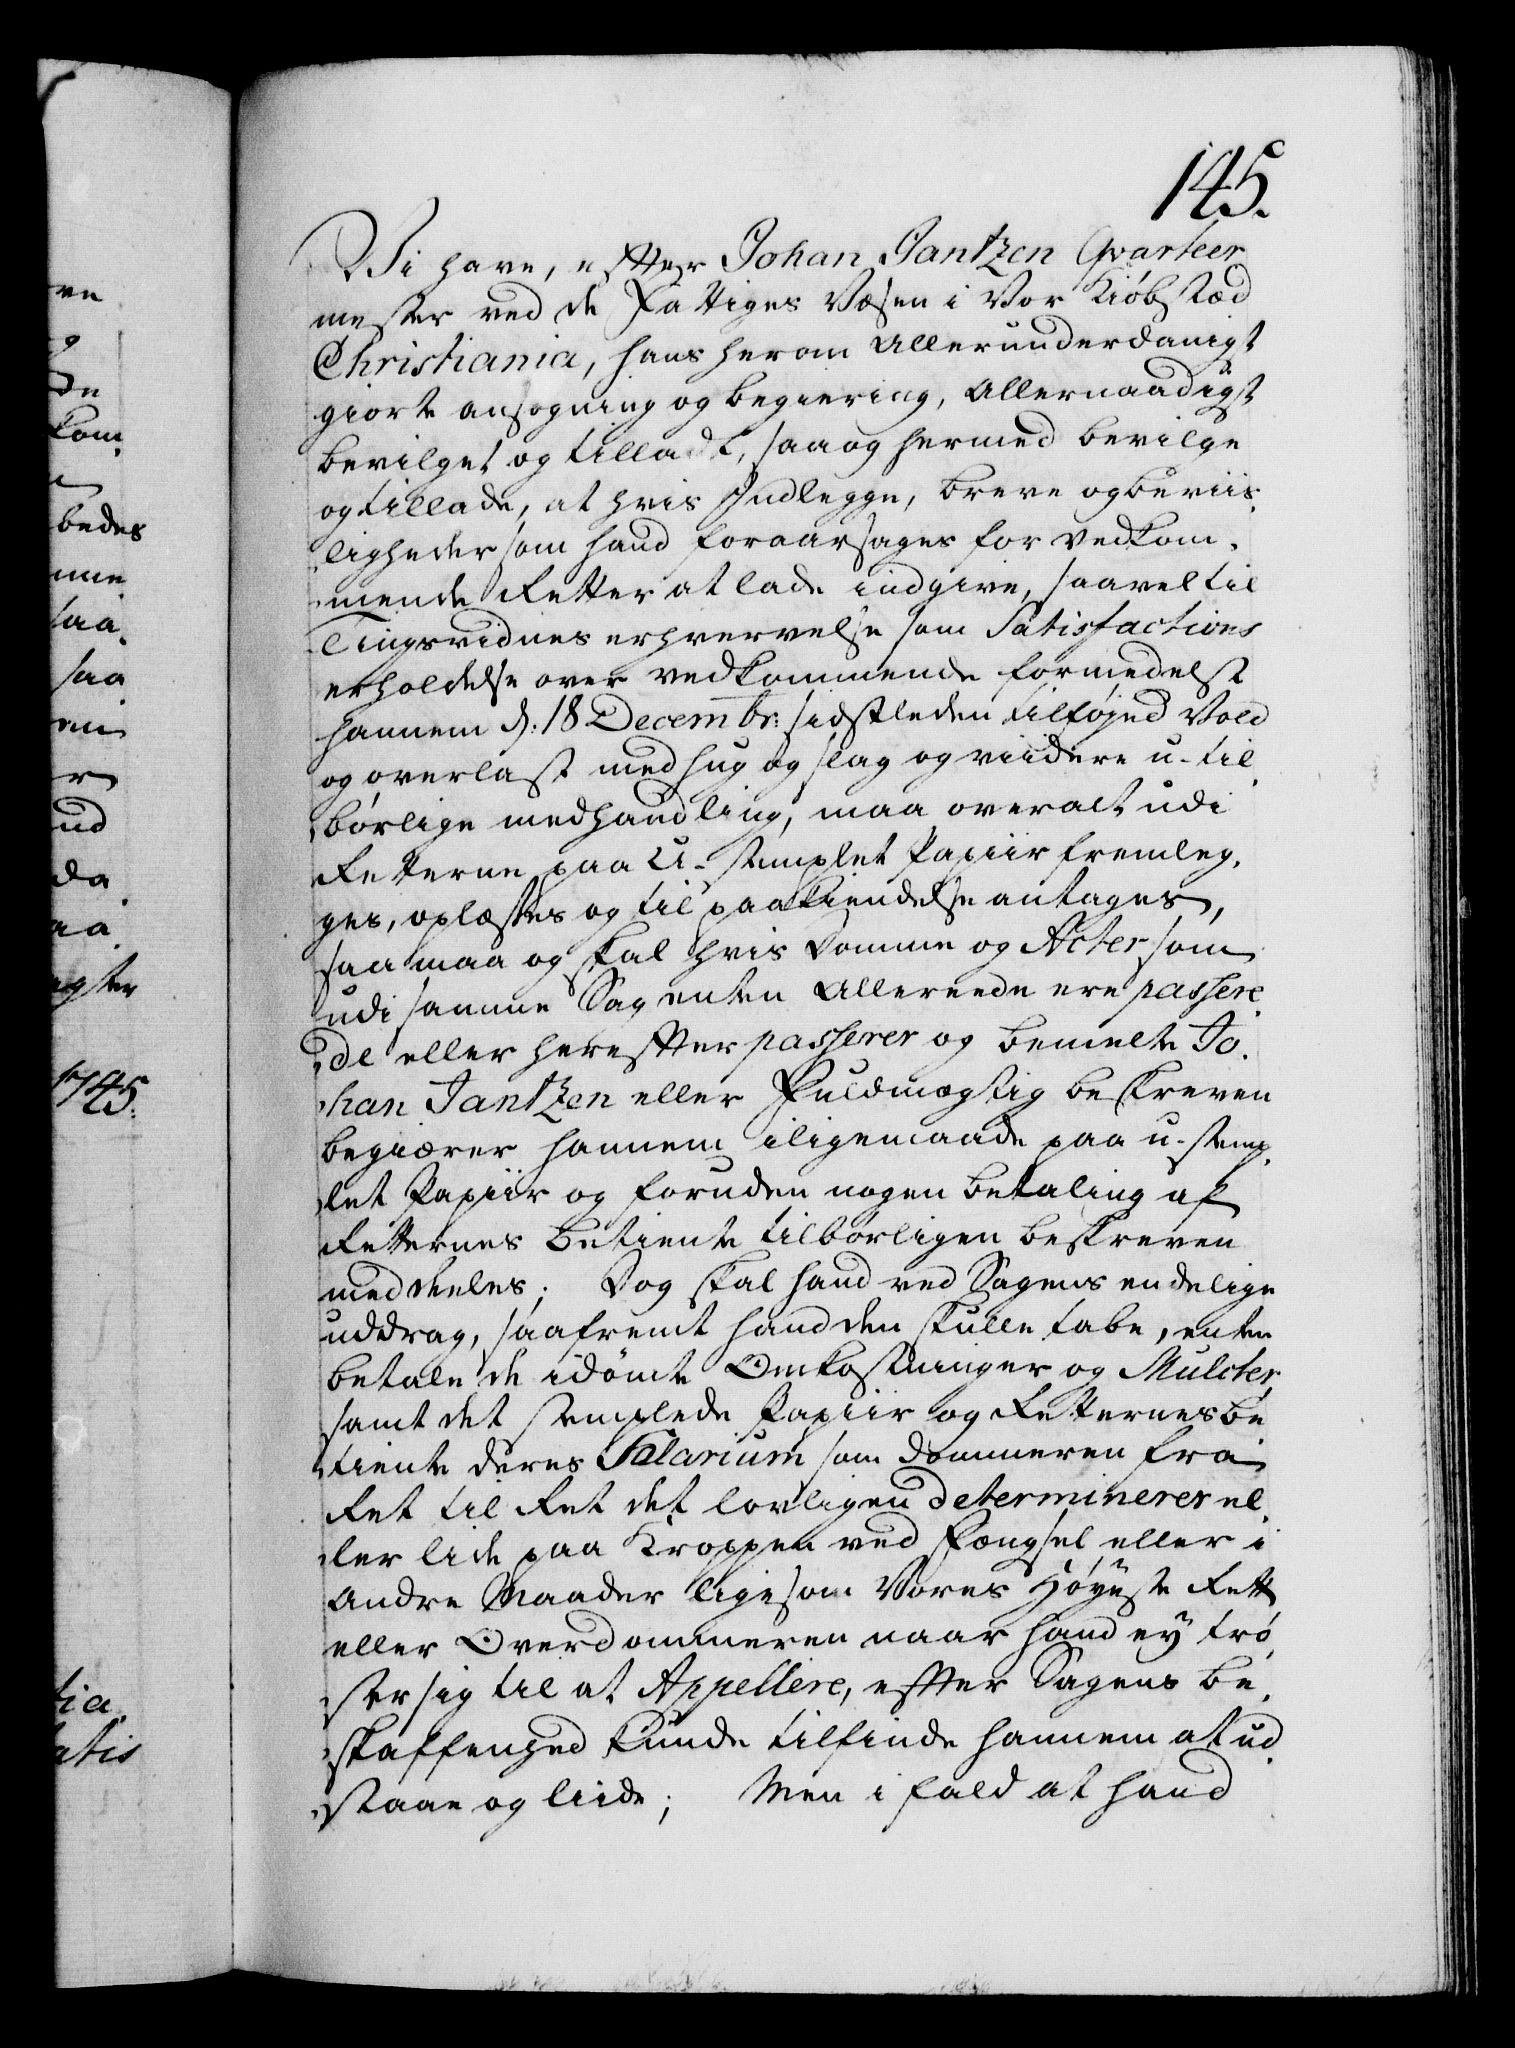 145.
Vi have, efter Johan Jantzen Qvarteer
mester ved de Fattiges Væsen i Vor Kiøbstæd
Christiania, hans herom Allerunderdanigst
giorte ansøgning og begiering, Allernaadigst
bevilget og tilladt, saa og hermed bevilge
og tillade, at hvis Indlegge, breve og beviis
ligheder som hand foraarsages for vedkom,
mende Retter at lade indgive, saavel til
Tingsvidnes erhvervelse som Satisfactions
erholdelse over vedkommende formedelst
hannem d: 18 Decembr: sidstleden tilføjed Vold
og overlast med hug og slag og viidere u-til
børlige medhandling, maa overalt udi
Retterne paa U-stemplet Papiir fremleg,
ges, oplæses og til paakiendelse antages,
saa maa og skal hvis Domme og Acter som
udi samme Sag enten Allereede ere passere
de eller herefter passerer og bemelte Jo,
han Jantzen eller Fuldmægtig beskreven
begiærer hannem iligemaade paa u-stemp,
let Papiir og foruden nogen betaling af
Retternes betiente tilbørligen beskreven
meddeeles; Dog skal hand ved Sagens endelige
uddrag, saafremt hand den skulle tabe, enten
betale de idømte Omkostninger og Mulcter,
samt det stemplede Papiir og Retternes be
tiente deres Salarium som dommeren fra
Ret til Ret det lovligen determinerer el,
ler lide paa Kroppen ved Fængsel eller i
Andre Maader ligesom Vores Høyeste Rett
eller Overdommeren naar hand ey trø
ster sig til at Appellere, efter Sagens be,
skaffenhed kunde tilfinde hannem at ud
staae og liide; Men i fald at hand